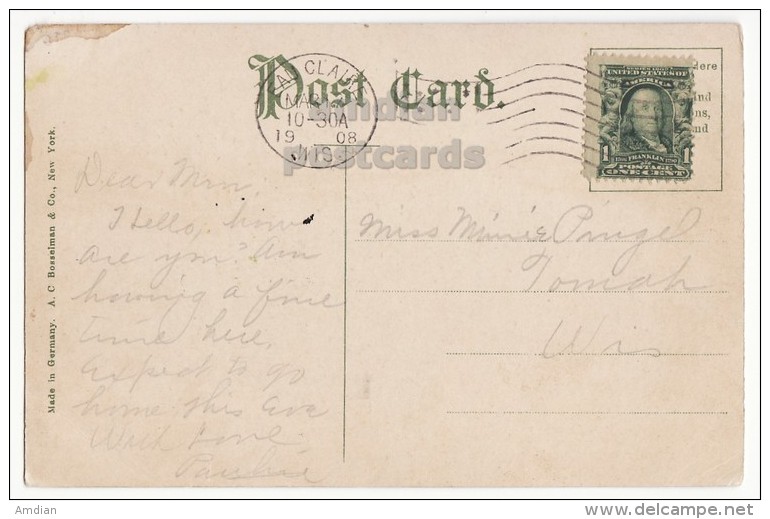 Post Card.
EAU CLAIRE
MAR
10-30A
19 08
WIS.
SERIES 1902
UNITED STATES OF
AMERICA
1 FRANKLIN 1
POSTAGE
ONE CENT
ere
ind
ons,
nd
Amdian
postcards
Dear Mrn,
Hello, how
are you? Am
having a fine
time here.
Expect to go
home this Eve
With Love.
Pauline
Miss Minie Pingel
Tomah
Wis
Made in Germany. A. C Bosselman & Co., New York.
Amdian
delcampe.net